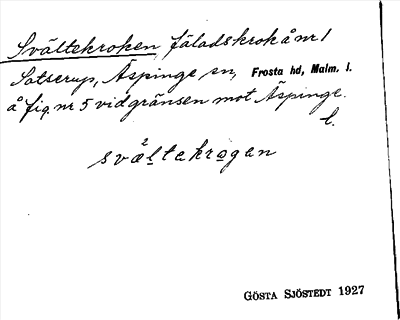 Svältekroken, fäladskrok å nr 1
Sotserup, Äspinge sn, Frosta hd, Malm. l.
å fig. nr 5 vid gränsen mot Äspinge.
l.
svältekrogen
GÖSTA SJÖSTEDT 1927